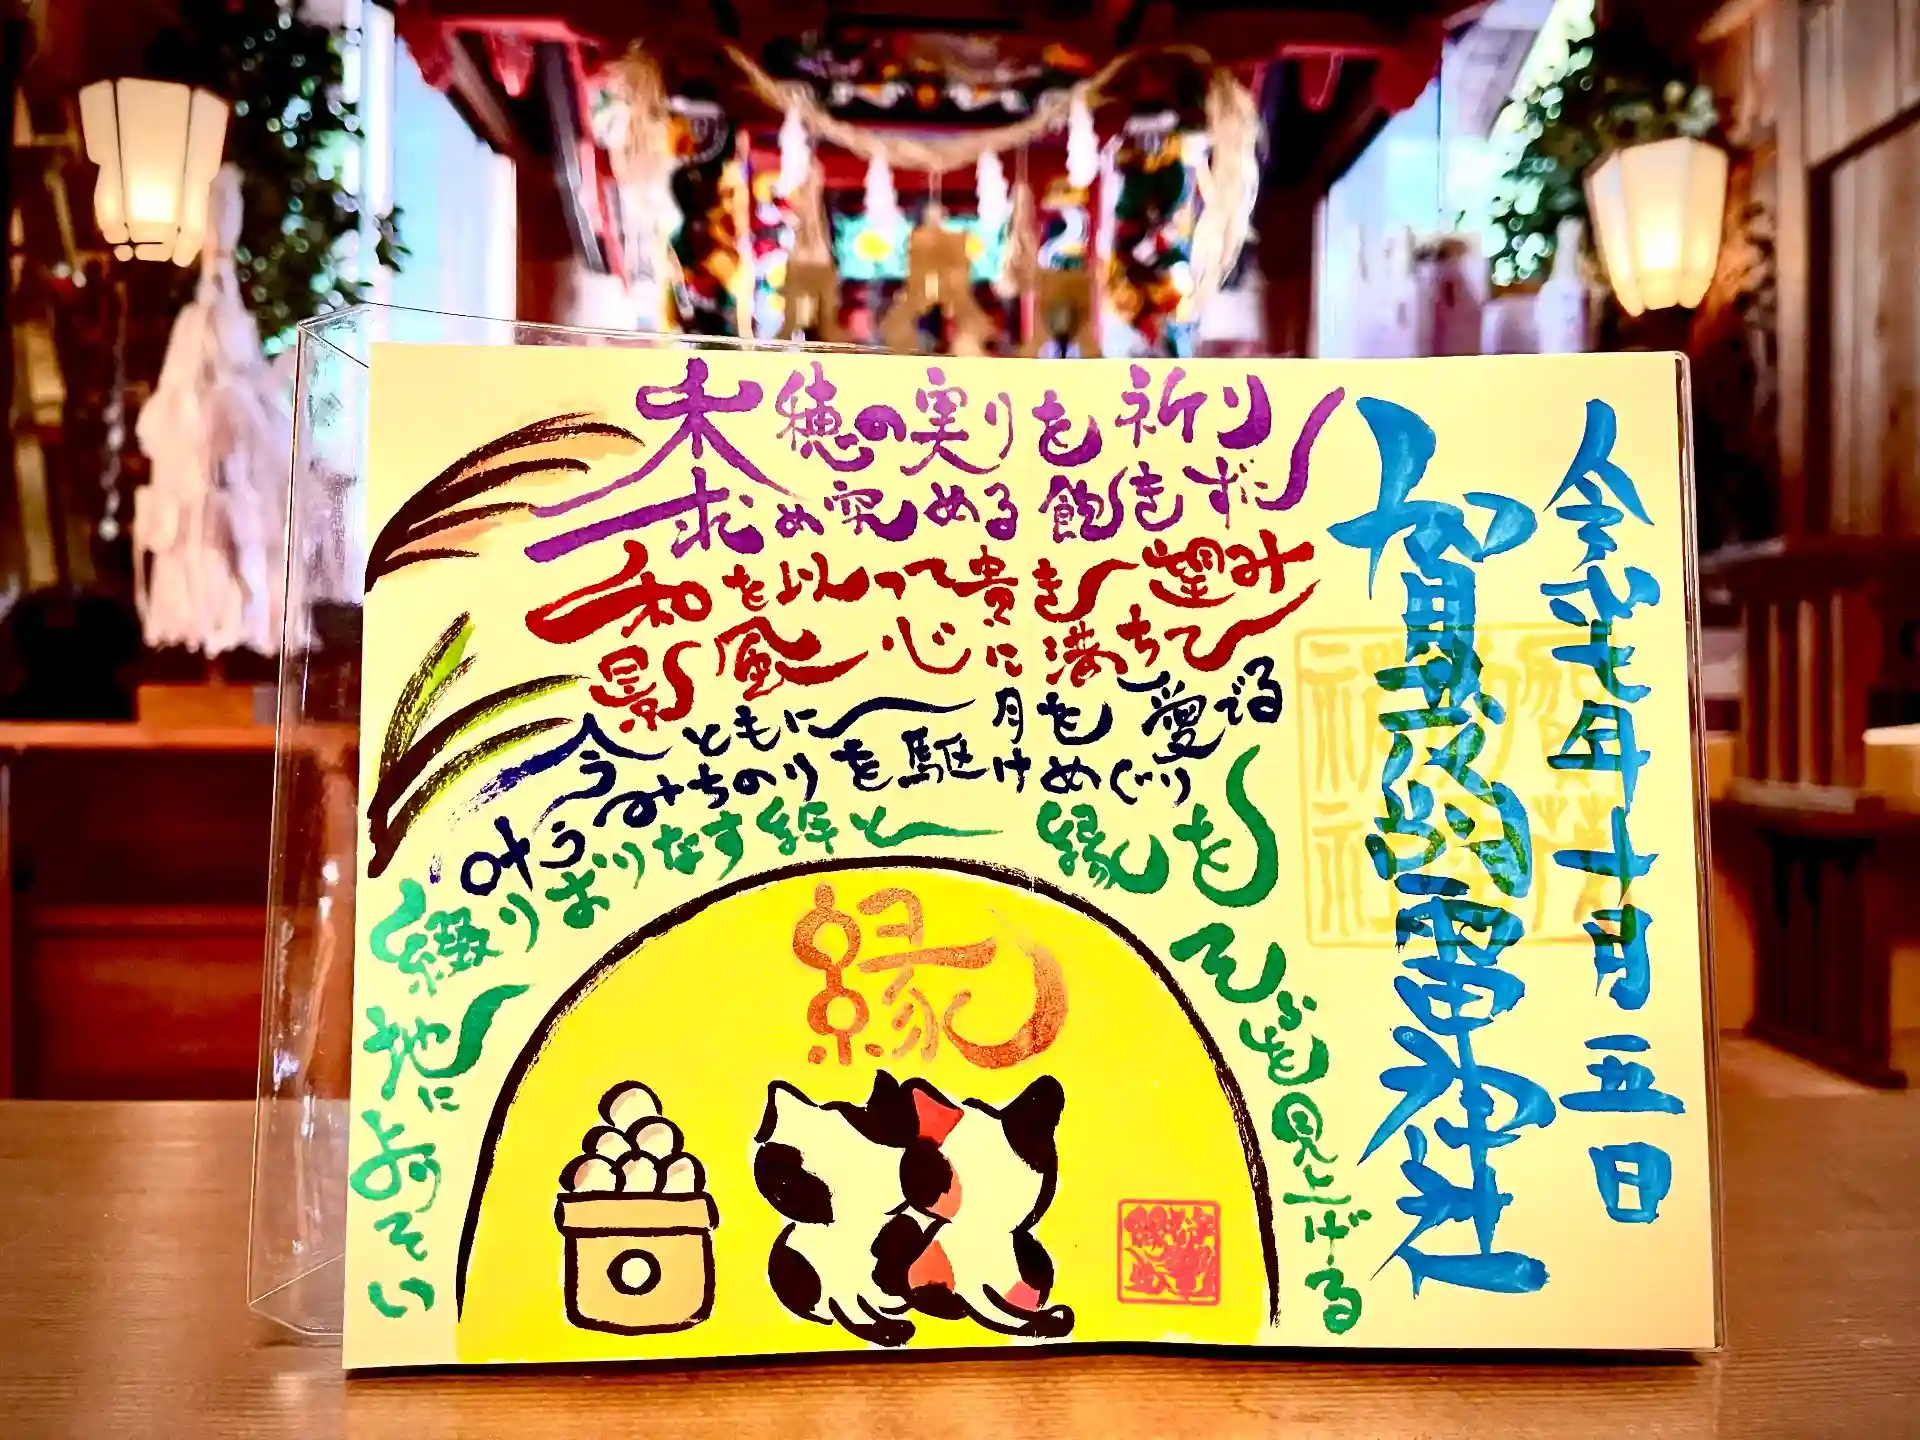 令和七年十月五日
賀茂別雷神社
木穂の実りを祈り
求め究める飽きずに
和を以って貴き望み
景風心に満ちて
今ともに月を愛でる
叶うみちのりを駆けめぐり
綴りおりなす絆と縁を
地によりそい
そらを見上げる
縁